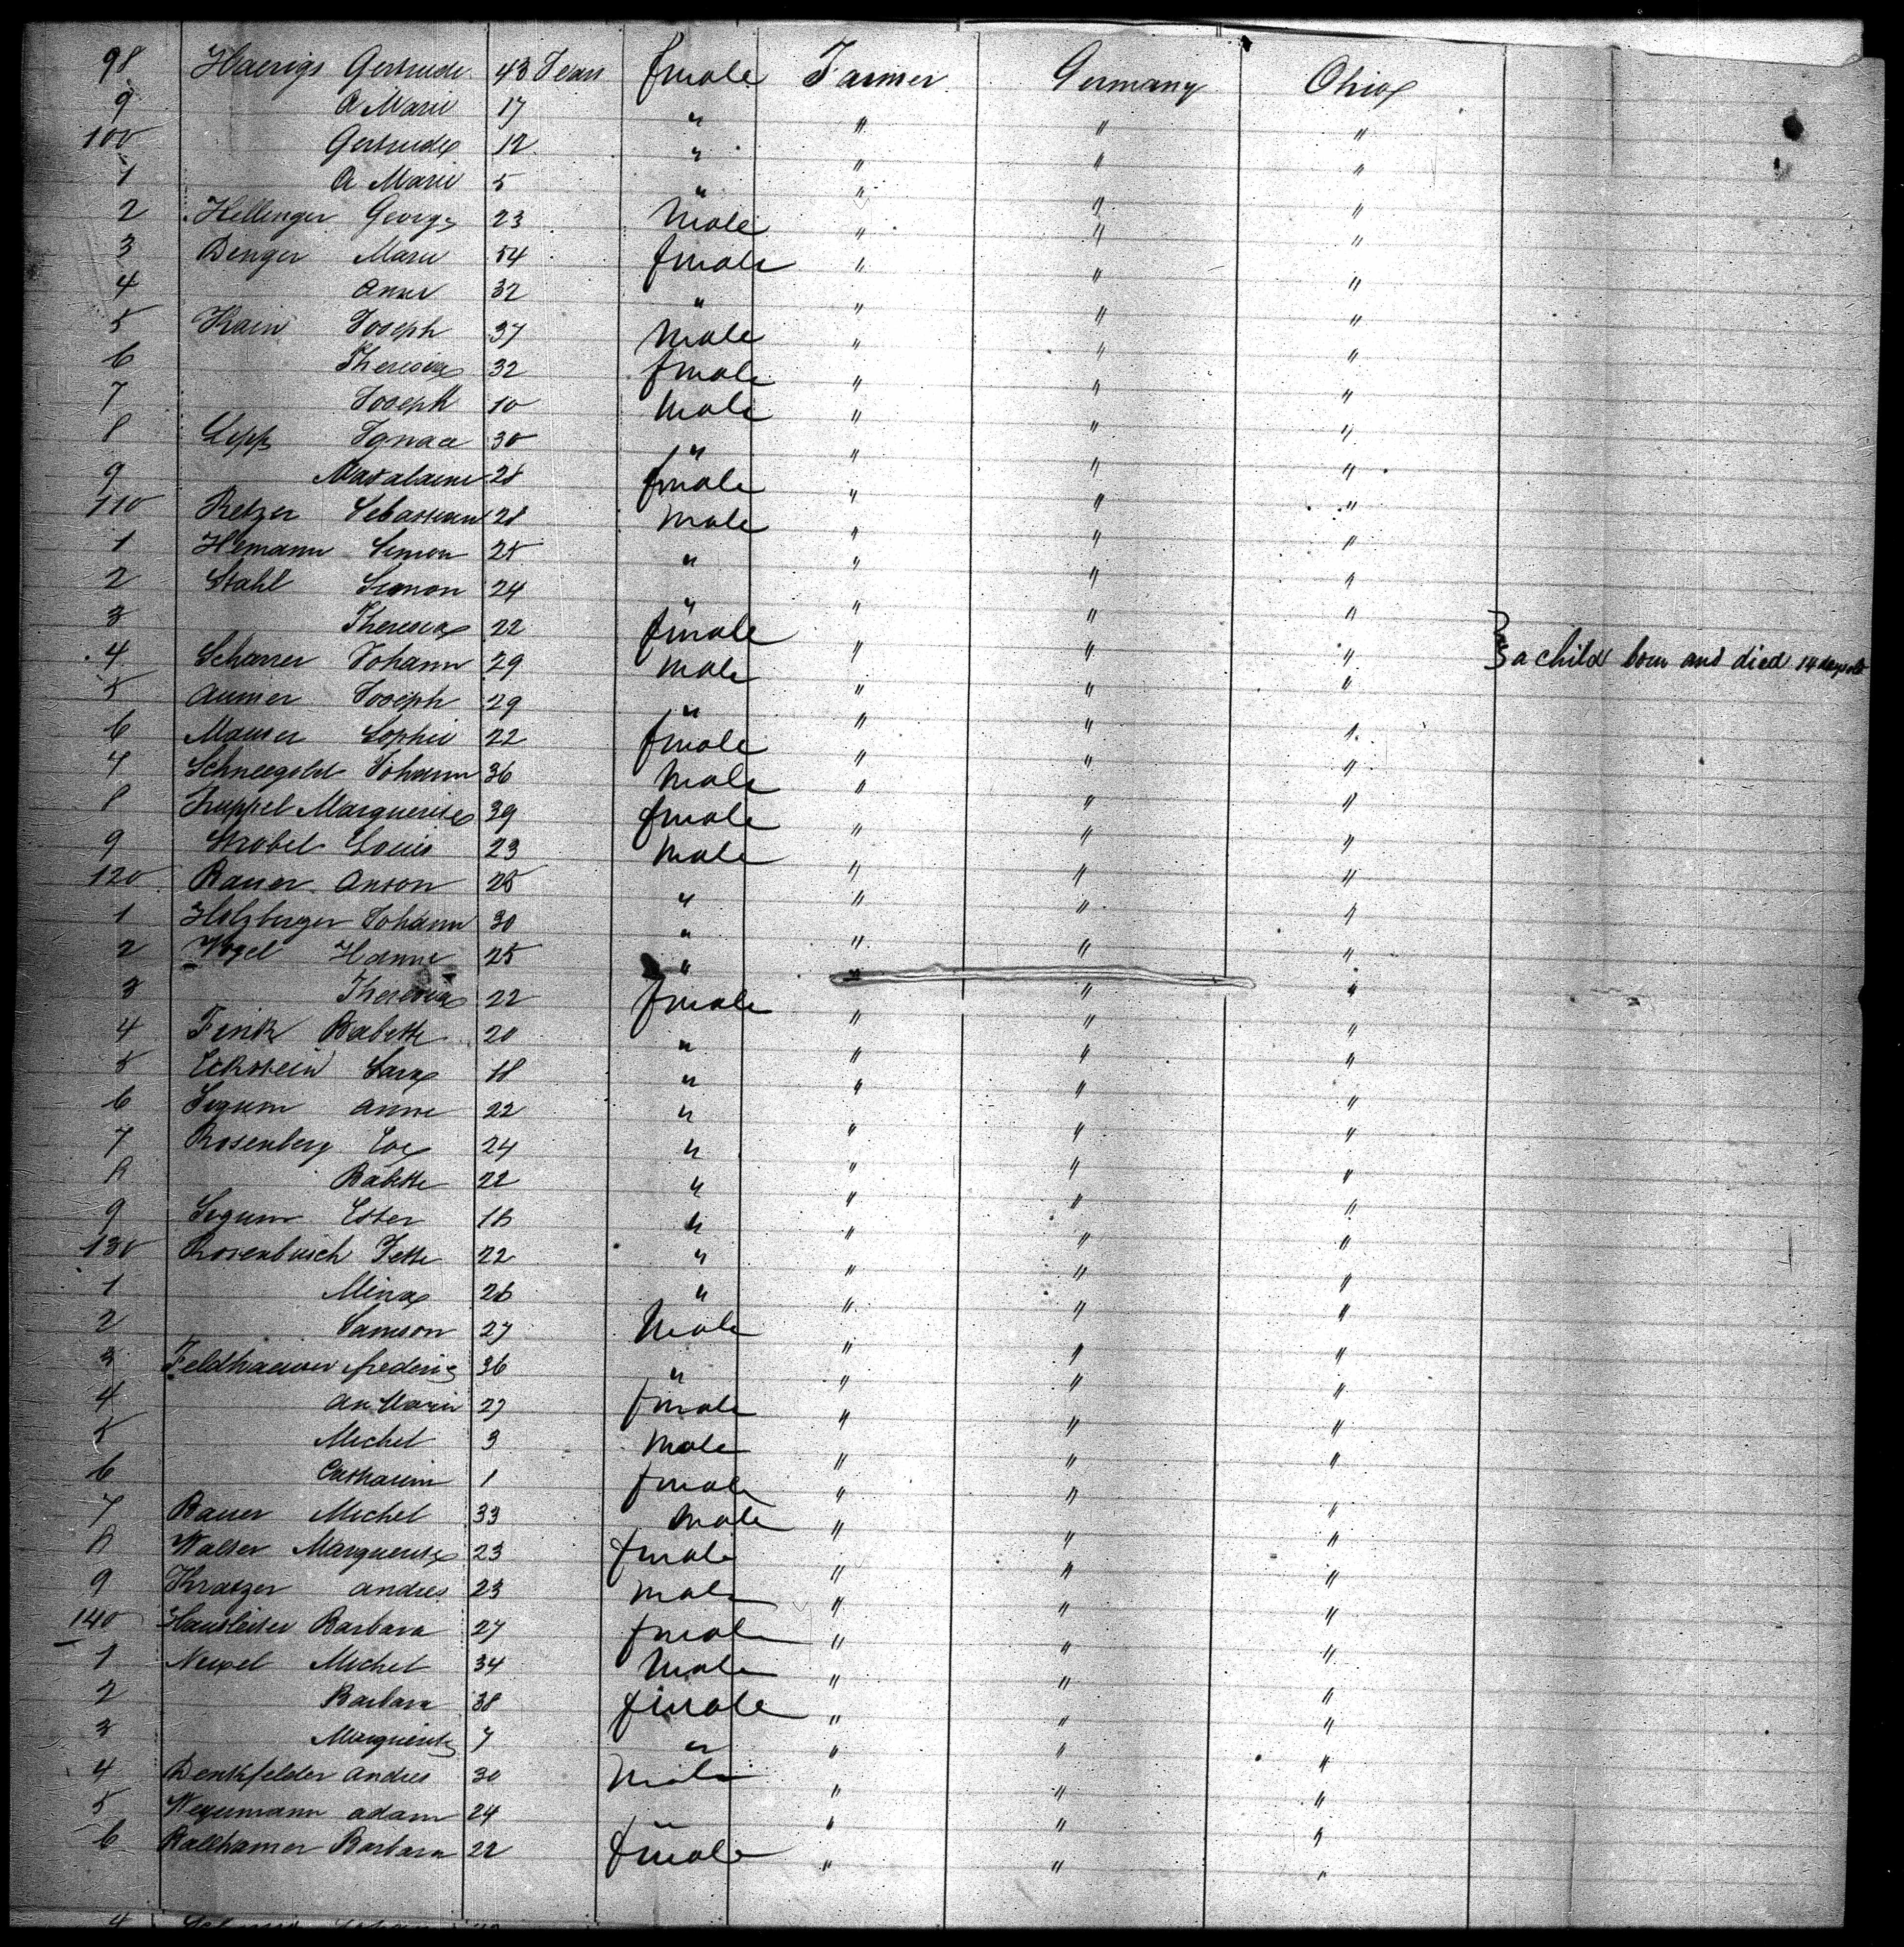 98 Haerigs Gertrude 43 Years female Farmer Germany Ohio
9 A Marie 17 " " " "
100 Gertrude 12 " " " "
1 A Marie 5 " " " "
2 Hellinger George 23 Male " " "
3 Denger Marie 54 female " " "
4 Anne 32 " " " "
5 Hain Joseph 37 Male " " "
6 Theresia 32 female " " "
7 Joseph 10 Male " " "
8 Lepp Ignaa 30 " " " "
9 28 female " " "
110 Retzer Sebastian 28 Male " " "
1 Hemann Simon 25 " " " "
2 Stahl Simon 24 " " " "
3 Theresia 22 female " " "
4 Scharrer Johann 29 Male " " " a child born and died 14 days old
5 Aumer Joseph 29 " " " "
6 Mauser Sophie 22 female " " "
7 Schneegold Johann 36 Male " " "
8 Marguerite 39 female " " "
9 Strobel Louis 23 Male " " "
120 Bauer Anton 25 " " " "
1 Holzberger Johann 30 " " " "
2 Vogel Hanne 25 " " " "
3 Theresia 22 female " " "
4 Fink Babette 20 " " " "
5 Eckstein Sara 18 " " " "
6 Anne 22 " " " "
7 Rosenberg Eve 24 " " " "
8 Babette 22 " " " "
9 Ester 16 " " " "
130 Rosenbusch Jette 22 " " " "
1 Mina 26 " " " "
2 Samson 27 Male " " "
3 Feldhaeuser frederic 36 " " " "
4 An Marie 27 female " " "
5 Michel 3 Male " " "
6 Catharin 1 female " " "
7 Bauer Michel 33 Male " " "
8 Walter Marguerite 23 female " " "
9 Kratzer Andres 23 Male " " "
140 Hausleiter Barbara 27 female " " "
1 Meixel Michel 34 Male " " "
2 Barbara 38 female " " "
3 Marguerite 7 " " " "
4 Denkfelder Andres 30 Male " " "
5 Wegemann Adam 24 " " " "
6 Barbara 22 female " " "